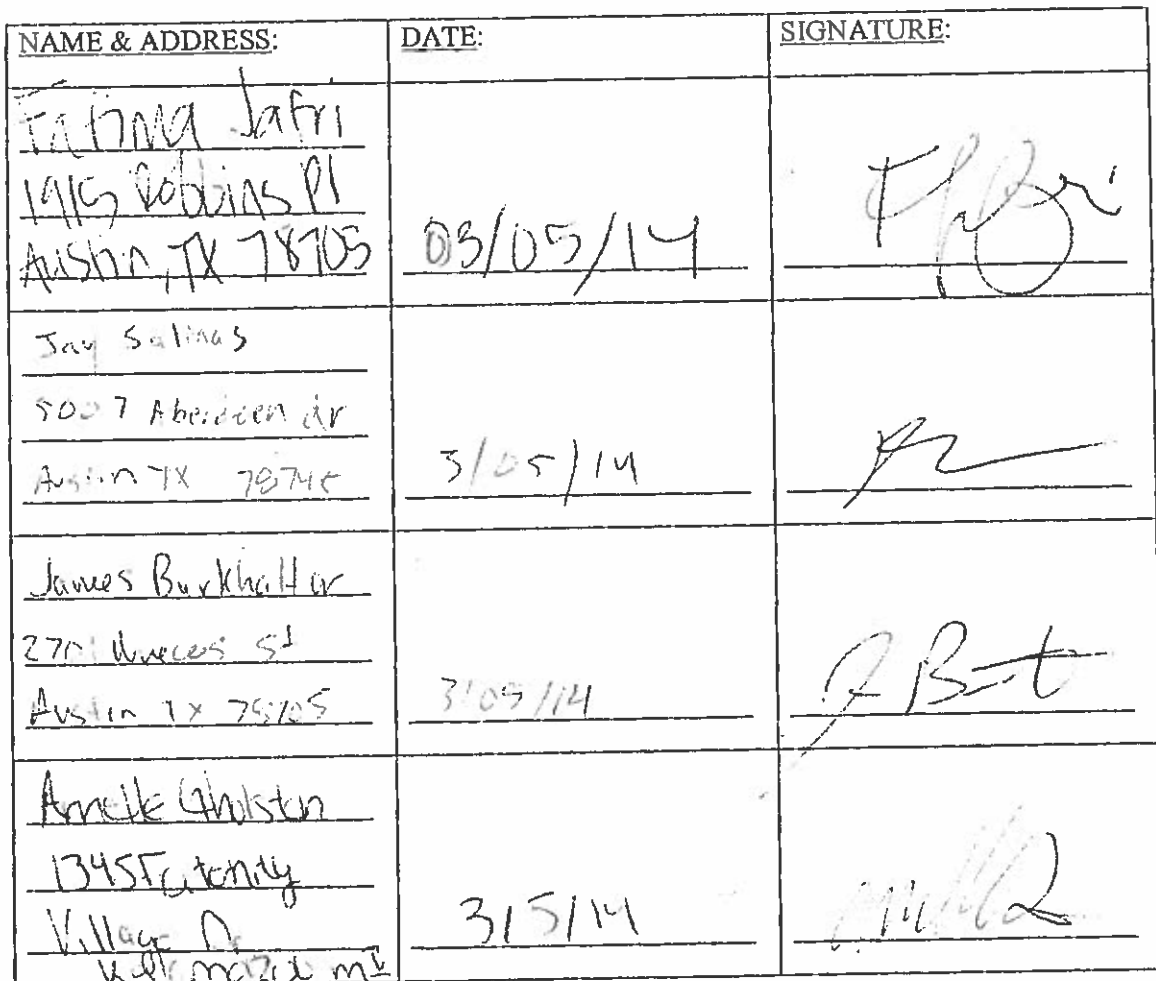 NAME & ADDRESS: DATE: SIGNATURE:
Fatima Jafri
1915 Robbins Pl
Austin, TX 78705 03/05/14
Jay Salinas
5007 Aberdeen dr
Austin TX 78745 3/05/14
James Burkhalter
St
Austin TX 78705 3/05/14
Annette Gholston
1345 Fraternity
Village Dr 3/5/14
MI